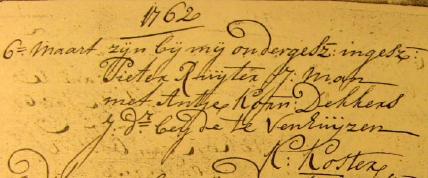 1762
6e maart zijn bij mij ondergesz: ingesz:
Pieter Ruyter J: man
met Antje Korn: Dekkers
J: dr beyde te Venhuijzen
K: Koster